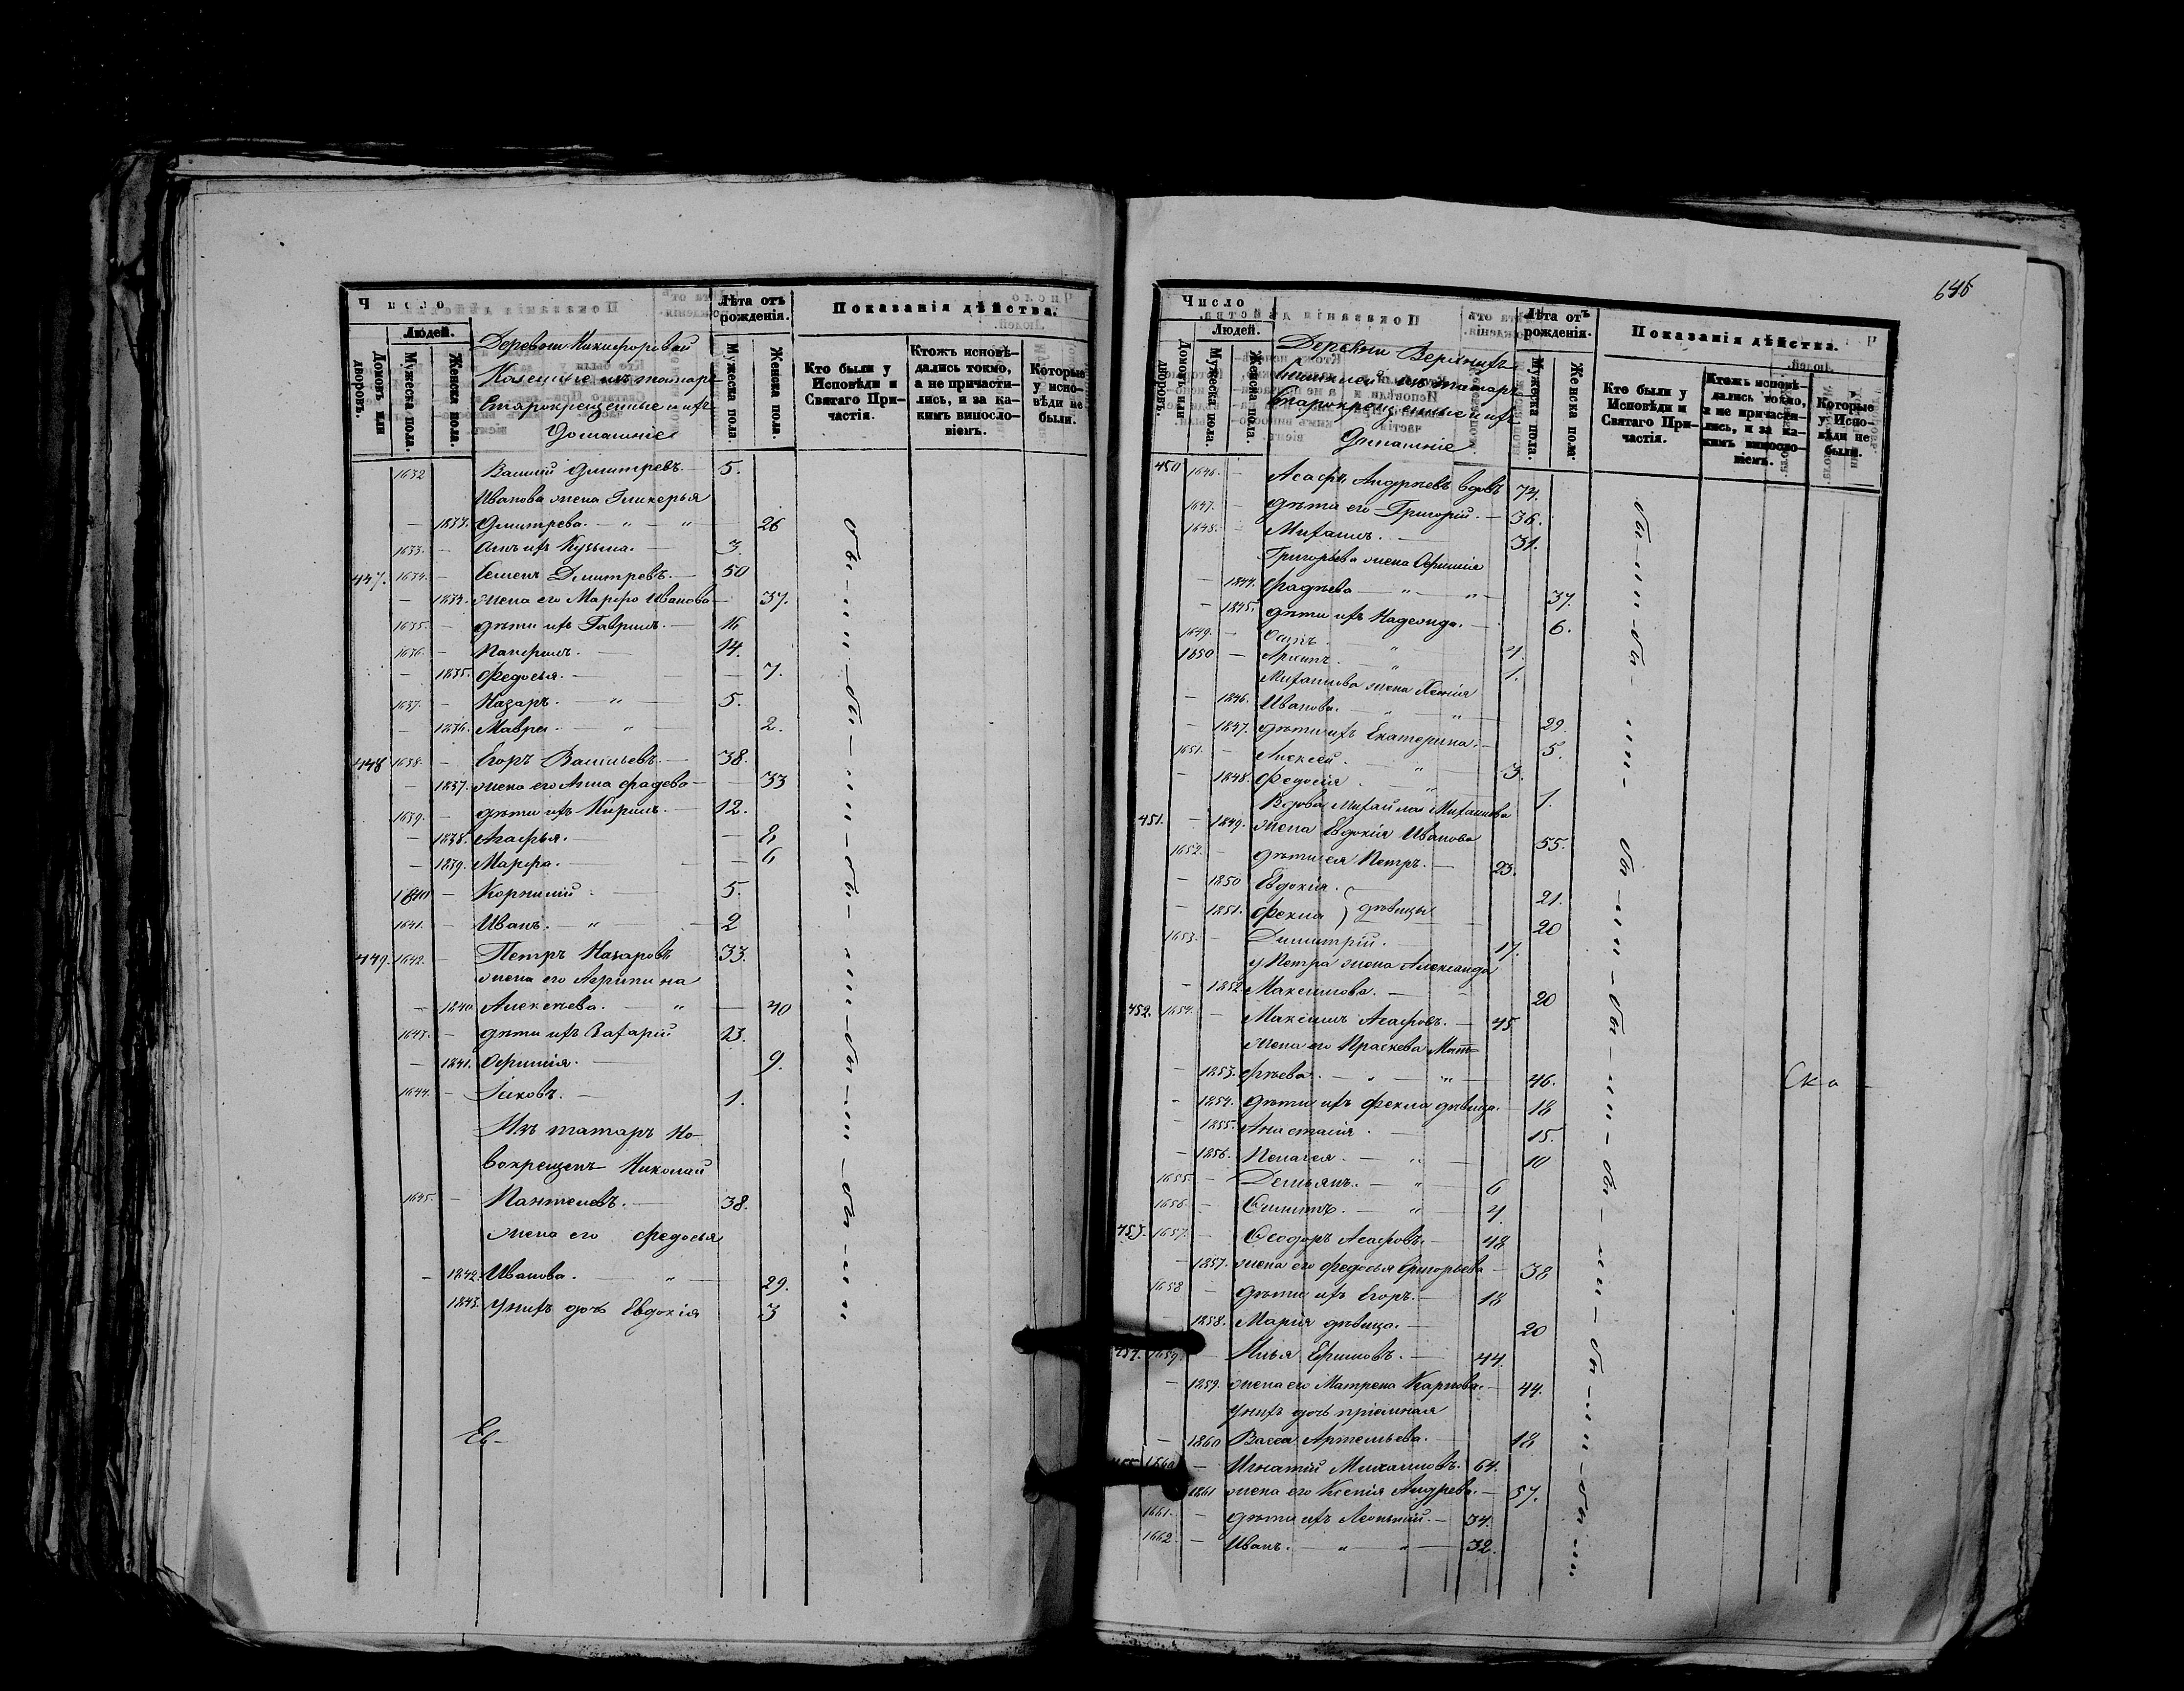 Число
Людей.
Домовъ или дворовъ.
Мужеска пола.
Женска пола.
Деревни Никифоровой
Казенные изъ татаръ
Старокрещенные и ихъ
Домашніе
Лѣта отъ рожденія.
Мужеска пола.
Женска пола.
Показанія дѣйства.
Кто были у Исповѣди и Святаго Причастія.
Ктожъ исповѣдались токмо, а не причастились, и за какимъ винословіемъ.
Которые у исповѣди не были.
1632 Василій Дмитревъ 5.
Иванова жена Гликерья
— 1833. Дмитрева. — " — " 26
1633. — Сынъ ихъ Кузьма. — 3.
447. 1634. — Семенъ Дмитревъ. — 50
— 1834. жена его Марфа Иванова — 37.
1635. — дѣти ихъ Гаврилъ. — 16
1636. — Панфилъ. — 14.
— 1835. Федосья. — 7.
1637. — Назаръ. — " — 5.
— 1836. Мавра. — " — 2.
448 1638. — Егоръ Васильевъ. — 38.
— 1837. жена его Анна Фадева — 33
1639. — дѣти ихъ Кирилъ. — 12.
— 1838. Агафья. — 8
— 1839. Марфа. — 6
1640 — Корнилій. — 5.
1641. — Иванъ. — " — 2
449. 1642. — Петръ Назаровъ 33.
жена его Агрипина
— 1840. Алексѣева. — " — 40
1643. — дѣти ихъ Захарій 13.
— 1841. Офимія. — 9.
1644. — Іаковъ. — 1.
Изъ татаръ Но-
вокрещенъ Николай
1645. — Пантелевъ. — 38.
жена его Федосья
— 1842. Иванова. — " — 29.
1843. у нихъ дочь Евдокія 3
бы — ли — бы — ли — бы — ли — бы — ли — бы — ли
646
Число
Людей.
Домовъ или дворовъ.
Мужеска пола.
Женска пола.
Деревни Верхнихъ
изъ татаръ
Старокрещенные и ихъ
Домашніе
Лѣта отъ рожденія.
Мужеска пола.
Женска пола.
Показанія дѣйства.
Кто были у Исповѣди и Святаго Причастія.
Ктожъ исповѣдались токмо, а не причастились, и за какимъ винословіемъ.
Которые у Исповѣди не были.
450 1646. — Асафъ Андреевъ вдовъ 74.
1647. — дѣти его Григорій. — 36.
1648. — Михаилъ. — 31.
Григорьева жена Офимія
— 1844. Фадѣева — " — " — 37.
— 1845. дѣти ихъ Надежда. — 6.
1649. — Осипъ. — 4.
1650 — Архипъ. — " 1.
Михаилова жена Ксенія
— 1846. Иванова. — " — " — 29.
— 1847. дѣти ихъ Екатерина. — 5.
1651. — Алексей. — " — 3.
— 1848. Федосія. — " — 1.
Вдова Михайла Михаилова
451. — 1849. жена Евдокія Иванова 55.
1652. — дѣти ея Петръ. — 23.
— 1850 Евдокія. — 21.
— 1851. Фекла } дѣвицы — 20
1653. — Димитрій. — 17.
у Петра жена Александра
— 1852. Максимова. — 20
452. 1654. — Максимъ Асафовъ. — 45
Жена его Праскева Мат-
— 1853. фѣева. — " — " — 46.
— 1854. дѣти ихъ Фекла дѣвица. — 18
— 1855. Анастасія. — 15.
— 1856. Пелагея. — " — 10
1655. — Демьянъ. — " — 6
1656 — Филипъ. — " — 4.
453. 1657. — Ѳеодоръ Асафовъ. — 48
— 1857. жена его Федосья Григорьева — 38
1658 — дѣти ихъ Егоръ. — 18
— 1858. Марія дѣвица. — 20
454. 1659. — Илья Ефимовъ. — 44.
— 1859. жена его Матрена Карпова. — 44.
у нихъ дочь пріемная
— 1860 Васса Артемьева. — 18
455 1660 — Игнатій Михаиловъ. 64.
1861 жена его Ксенія Андрева. — 57.
1661. — дѣти ихъ Леонтій. — 34.
1662 — Иванъ. — " — " — 32.
бы — ли — бы — ли — бы — ли — бы — ли — бы — ли — бы — ли — бы — ли